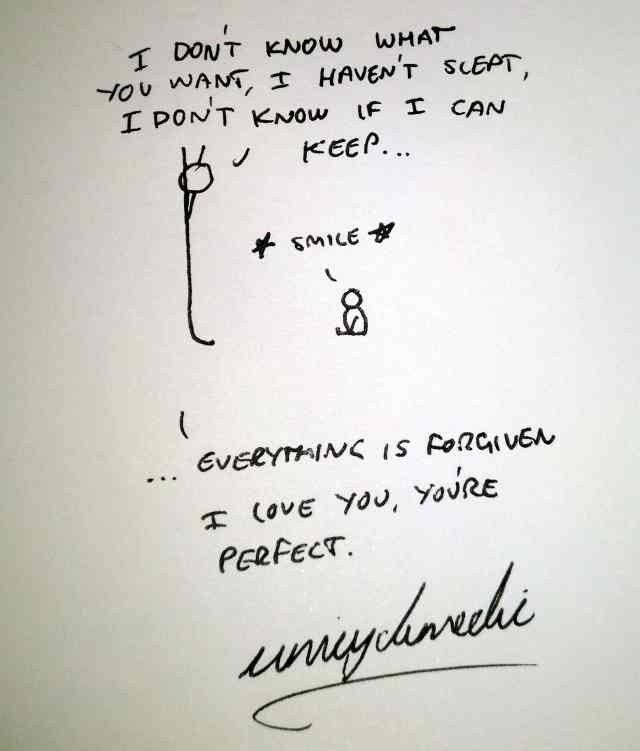 I DON'T KNOW WHAT
YOU WANT, I HAVEN'T SLEPT,
I DON'T KNOW IF I CAN
KEEP...
* SMILE *
... EVERYTHING IS FORGIVEN
I LOVE YOU, YOU'RE
PERFECT.